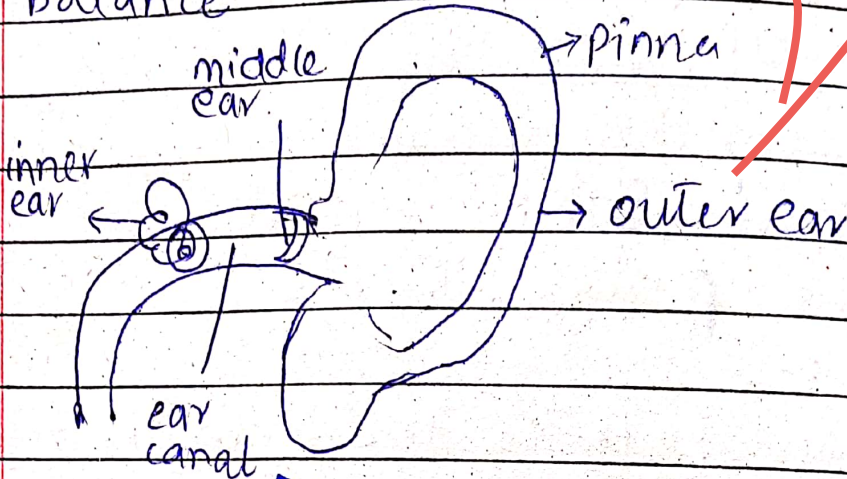 Ballance
middle
ear
Pinna
inner
ear
outer ear
ear
canal